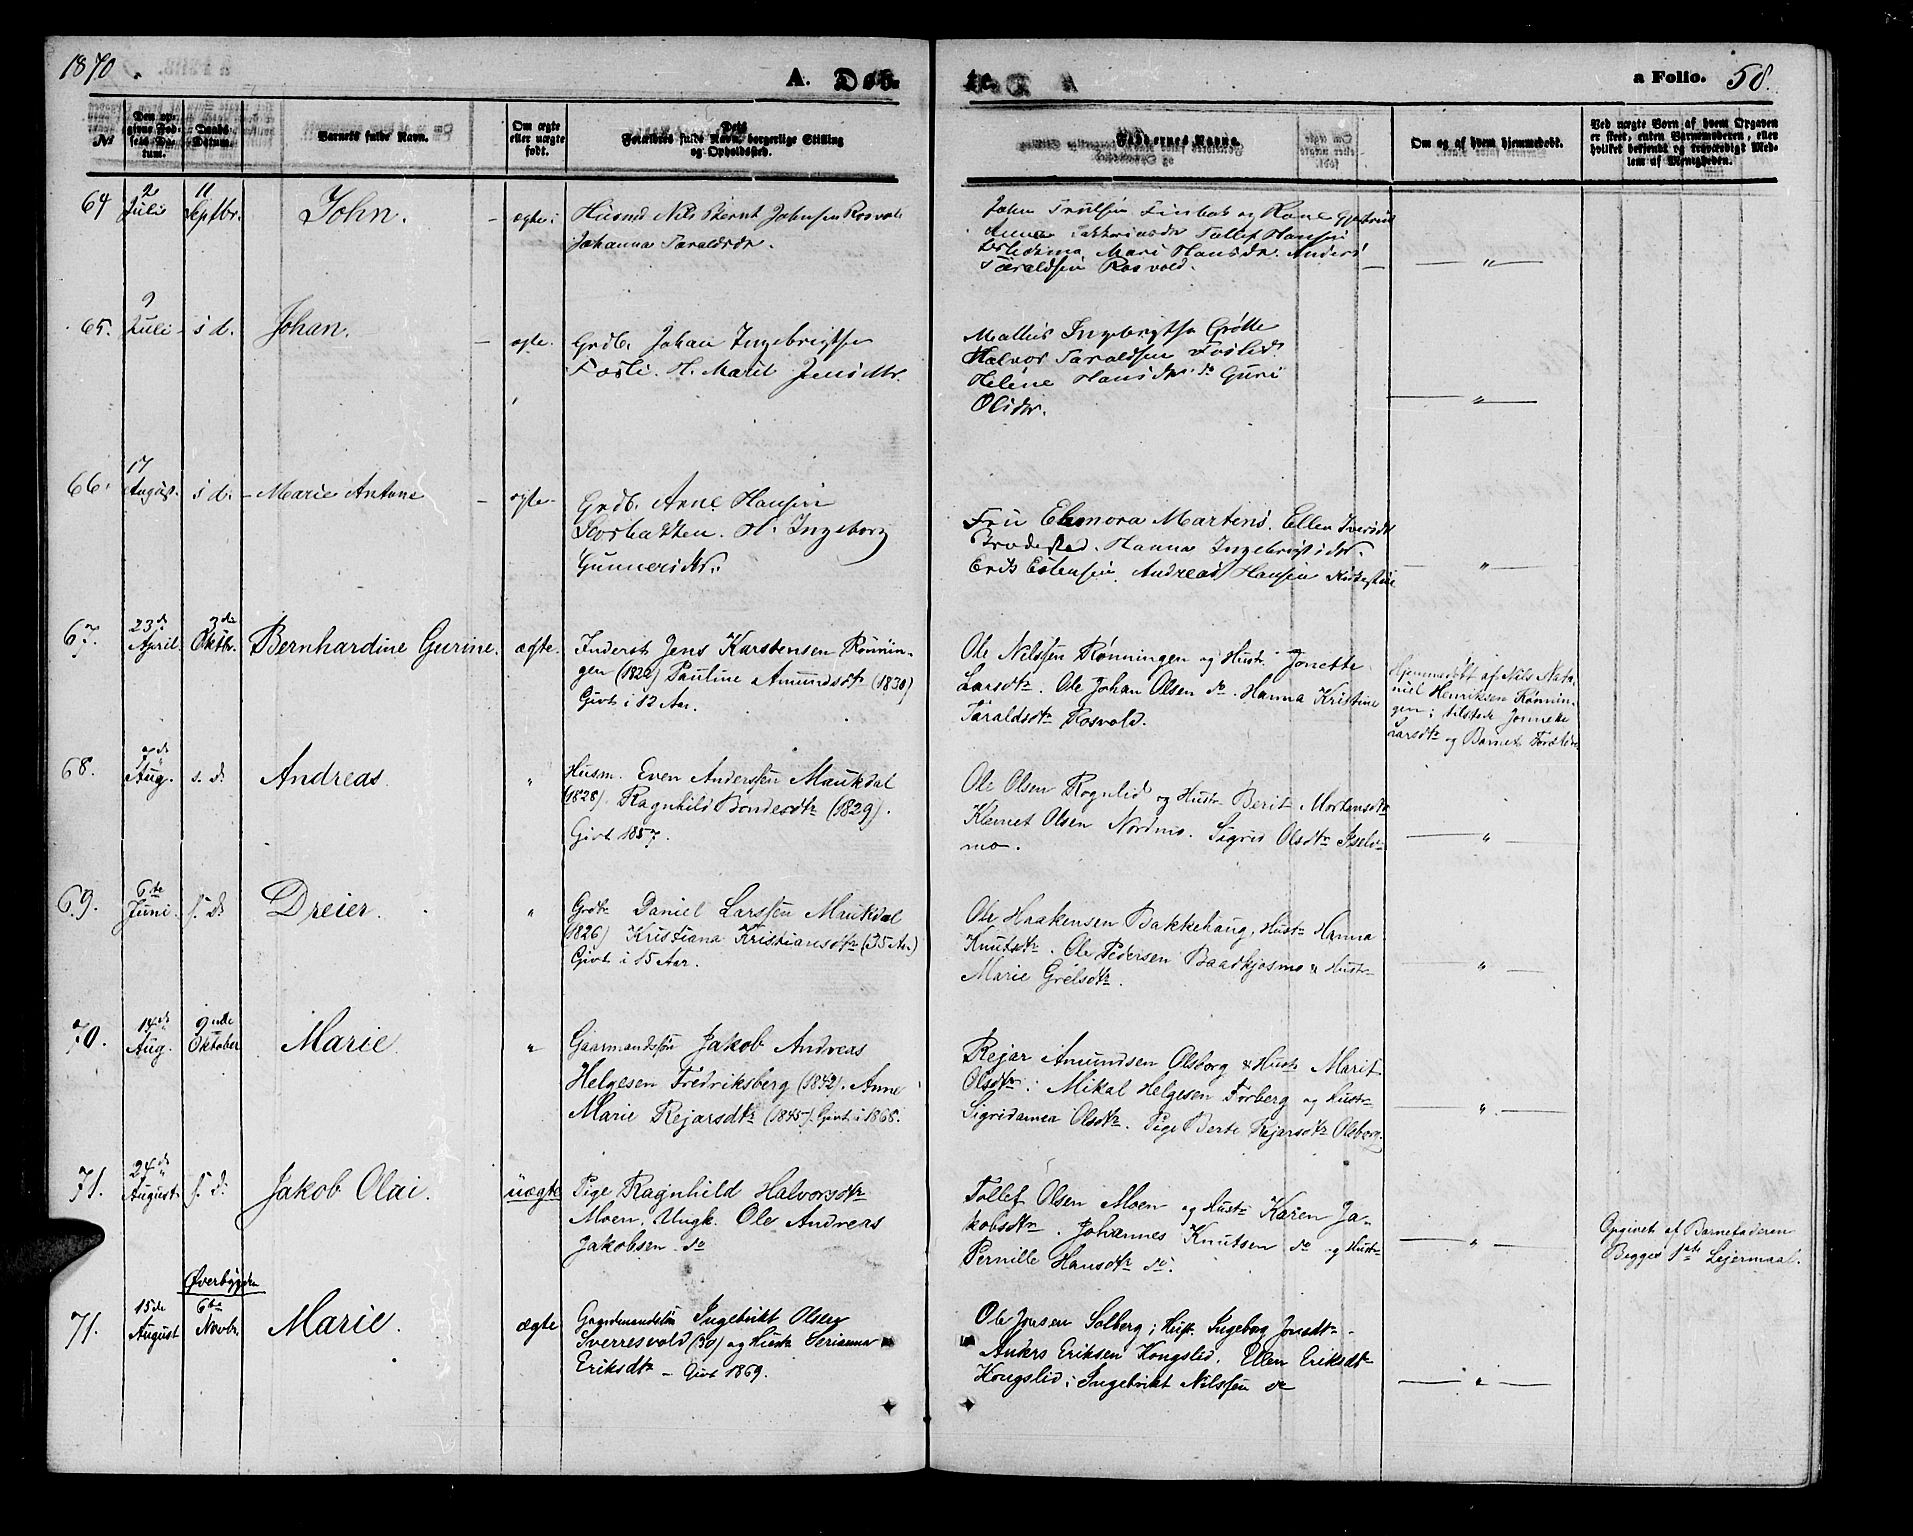 1870.
A. Døb-
te.
a Folio. 58.
No
Den opgivne Fødsels Datum.
Daabs Datum.
Barnets fulde Navn.
Om ægte eller uægte født.
Dets Forældres fulde Navn, borgerlige Stilling og Opholdssted.
Faddernes Navne.
Om og af hvem hjemmedøbt.
Ved uægte Børn af hvem Opgaven er skeet, enten Barnemoderen, eller hvilket bekjendt og troværdigt Medlem af Menigheden.
64 2 Juli 11 Septbr. John. ægte
Husmd Nils Bernt Johnsen Rosvold
Johanna Taraldsdr.
John Trulsen Finbak og Kone Gjertrud
Anna Tollef Hansen
Mari Hansdr. Anders
Taraldsen Rosvold.
65. 9 Juli s d. Johan. ægte.
Grdb. Johan Ingebrigtsen
Fosli. H. Marit Jensdtr.
Mathis Ingebrigtsen Grøtte
Halvor Taraldsen Foslid.
Helene Hansdtr. do Guri
Olsdtr.
66. 17 August. s d. Marie Antone ægte
Grdb. Arne Hansen
H. Ingeborg
Gunnersdtr.
Fru Elenora Martens. Ellen Iversdtr
Brodersted. Hanna Ingebrigtsdtr.
Erik Estensen Andreas Hansen
67. 23de April. 3die Oktbr. Bernhardine Gurine. ægte.
Inderst Jens Karstensen Rønnin-
gen (1822) Pauline Amundsdtr (1830)
Givt i 12 Aar.
Ole Nilssen Rønningen og Hustr. Jonette
Larsdtr. Ole Johan Olsen do. Hanna Kristine
Taraldsdtr Rosvold.
Hjemmedøbt af Nils Nata-
niel Henriksen Rønnin-
gen; tilstede Jonnette
Larsdtr og Barnets Forældre
68. Aug. s. d. Andreas "
Husm. Even Anderssen Maukdal
(1828). Ragnhild Bondesdtr (1829).
Givt 1857.
Ole Olsen Rognlid og Hustr Berit Mortensdtr
Klemet Olsen Nordmo. Sigrid Olsdtr Iselv-
mo.
69. 6te Juni. s. d. Dreier. "
Grdbr Daniel Larssen Maukdal
(1826) Kristiana Kristiansdtr (35 Aar)
Givt i 15 Aar.
Ole Haakensen Bakkehaug, Hustr Hanna
Knutsdtr. Ole Pedersen Baadkjosmo & Hustr
Marie Grelsdtr.
70. 14de Aug. 9nde Oktober Marie. "
Gaarmandssøn Jakob Andreas
Helgesen Fredriksberg (1842). Anne
Marie Rejarsdtr (1845). Givt i 1868.
Rejar Amundsen Olsborg & Hustr Marit
Olsdtr. Mikal Helgesen Forberg og Hustr
Sigridanna Olsdtr. Pige Berte Rejarsdtr Olsborg.
71. 24de August. s. d. Jakob Olai. uægte
Pige Ragnhild Halvorsdtr
Moen. Ungk. Ole Andreas
Jakobsen do
Tollef Olsen Moen og Hustr Karen Ja-
kobsdtr. Johannes Knutsen do og Hustr
Pernille Hansdtr do.
Opgivet af Barnefaderen
Begges 1ste Lejermaal.
Øverbygden
71. 15de August 6te Novbr. Marie. ægte
Gaardmandssøn Ingebrikt Olsen
Sverresvold (30) og Hustr Serianna
Eriksdtr – Givt 1869.
Ole Jonsen Solberg; Hust. Ingeborg Jonsdtr.
Anders Eriksen Kongslid. Ellen Eriksdtr
Kongslid; Ingebrikt Nilssen do